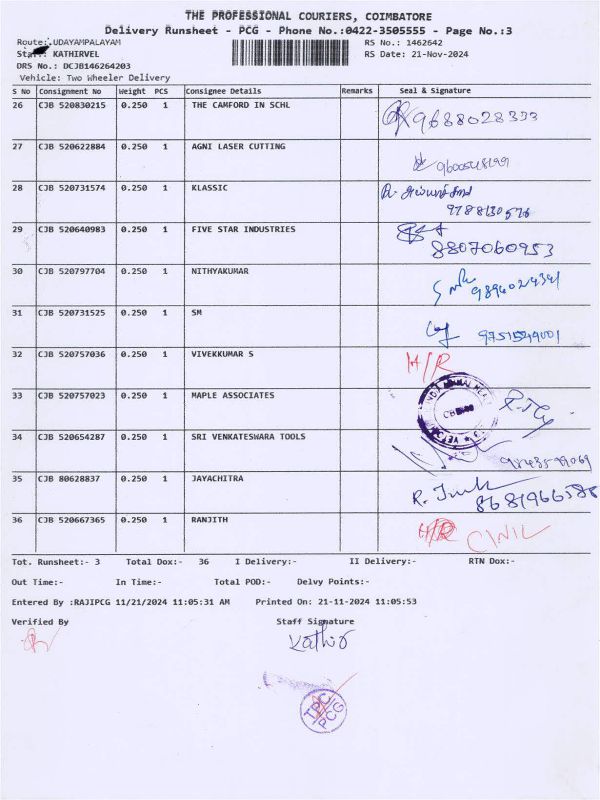 THE PROFESSIONAL COURIERS, COIMBATORE
Delivery Runsheet - PCG - Phone No.:0422-3505555 - Page No.:3
Route: UDAYAMPALAYAM RS No.: 1462642
Staff: KATHIRVEL RS Date: 21-Nov-2024
DRS No.: DCJB146264203
Vehicle: Two Wheeler Delivery
S No Consignment No Weight PCS Consignee Details Remarks Seal & Signature
26 CJB 520830215 0.250 1 THE CAMFORD IN SCHL 9688028333
27 CJB 520622884 0.250 1 AGNI LASER CUTTING
28 CJB 520731574 0.250 1 KLASSIC
9788130576
29 CJB 520640983 0.250 1 FIVE STAR INDUSTRIES
8807060953
30 CJB 520797704 0.250 1 NITHYAKUMAR
9894024341
31 CJB 520731525 0.250 1 SM
32 CJB 520757036 0.250 1 VIVEKKUMAR S H/R
33 CJB 520757023 0.250 1 MAPLE ASSOCIATES
34 CJB 520654287 0.250 1 SRI VENKATESWARA TOOLS
35 CJB 80628837 0.250 1 JAYACHITRA
8681966586
36 CJB 520667365 0.250 1 RANJITH H/R
Tot. Runsheet:- 3 Total Dox:- 36 I Delivery:- II Delivery:- RTN Dox:-
Out Time:- In Time:- Total POD:- Delvy Points:-
Entered By :RAJIPCG 11/21/2024 11:05:31 AM Printed On: 21-11-2024 11:05:53
Verified By Staff Signature
Kathir
TPC/
PCG